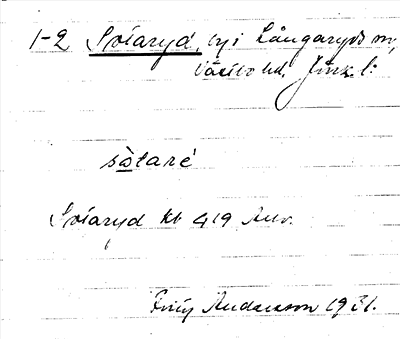 1-2 Sötaryd, by i Långaryds sn,
Västbo hd. Jönk. l:
sö̀taré
Sötaryd Kb 419 Anv.
Andersson 1931.